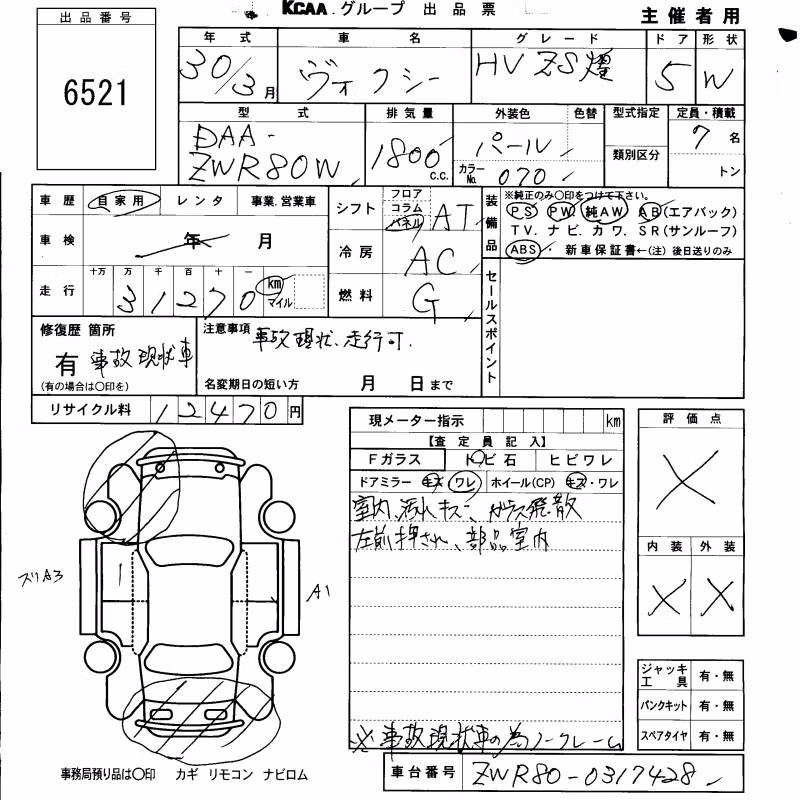 出品番号
6521
KCAA.グループ 出品票
主催者用
年式 車名 グレード ドア 形状
30/3月 ヴォクシー HV ZS煌 5 W
型式 排気量 外装色 色替 型式指定 定員・積載
DAA-ZWR80W 1800 c.c. パール 7名
カラーNo. 070 類別区分 トン
車歴 自家用 レンタ 事業.営業車
車検 年 月
走行 十万 万 千 百 十 一
31270 km マイル
シフト フロア コラム パネル AT
冷房 AC
燃料 G
装備品
※純正のみ○印をつけて下さい。
PS PW 純AW AB(エアバック)
TV.ナビ.カワ.SR(サンルーフ)
ABS. 新車保証書←(注)後日送りのみ
セールスポイント
修復歴 箇所
有 事故現状車
(有の場合は○印を)
注意事項 事故現状、走行可.
名変期日の短い方 月 日まで
リサイクル料 12470円
現メーター指示 km
【査定員記入】
Fガラス トビ石 ヒビワレ
ドアミラー キズ ワレ ホイール(CP) キズ・ワレ
室内、汚れキズ、ガラス飛散
左前押され、部品室内
※事故現状車の為ノークレーム
評価点
X
内装 外装
X X
ズリA3
A1
ジャッキ工具 有・無
パンクキット 有・無
スペアタイヤ 有・無
事務局預り品は○印 カギ リモコン ナビロム
車台番号 ZWR80-0317428